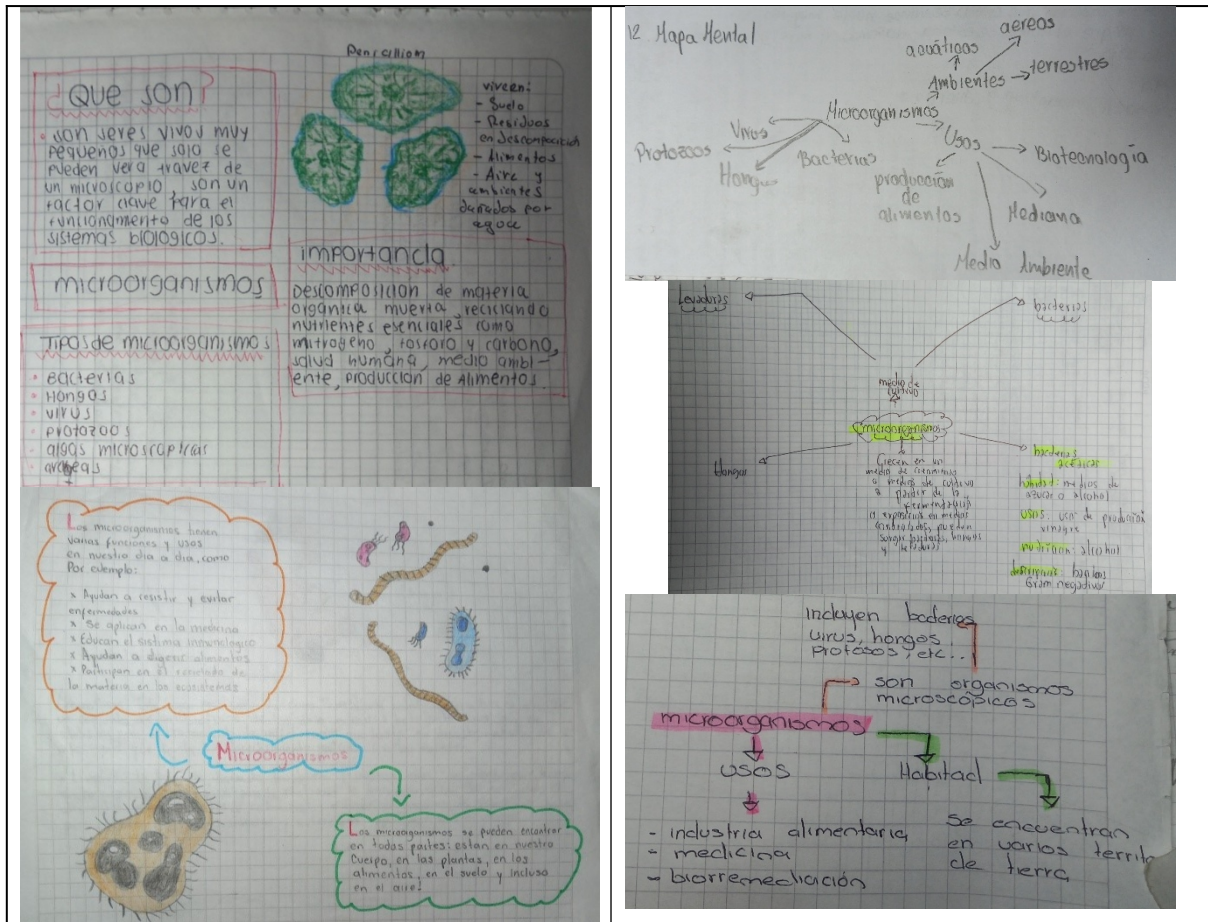 ¿Que son?
• son seres vivos muy
pequeños que solo se
pueden ver a travez de
un microscopio, son un
factor clave para el
funcionamiento de los
sistemas biologicos.
microorganismos
Tipos de microorganismos
• Bacterias
• Hongos
• virus
• protozoos
• algas microscopicas
• arqueas
Penicillium
viven:
- Suelo
- Residuos
en descomposición
- Alimentos
- Aire y
ambientes
dañados por
agua
importancia
Descomposicion de materia
organica muerta, reciclando
nutrientes esenciales como
nitrogeno, fosforo y carbono,
salud humana, medio ambi-
ente, produccion de Alimentos.
Los microorganismos tienen
varias funciones y usos
en nuestro dia a dia, como
Por ejemplo:
x Ayudan a resistir y evitar
enfermedades
x Se aplican en la medicina
x Educan el sistema inmunologico
x Ayudan a digerir alimentos
x Participan en el reciclado de
la materia en los ecosistemas
Microorganismos
Los microorganismos se pueden encontrar
en todas partes: están en nuestro
cuerpo, en las plantas, en los
alimentos, en el suelo y incluso
en el aire!
12 Mapa Mental
aéreos
acuáticos
Ambientes
terrestres
Microorganismos
Virus
Usos
Protozoos
Bacterias
Biotecnología
Hongos
producción
de
alimentos
Medicina
Medio Ambiente
Levaduras
bacterias
medio de
cultivo
microorganismos
Hongos
Crecen en un
medio de crecimiento
o medios de cultivo
a partir de la
fermentación
o exposición en medios
controlados, pueden
surgir bacterias, hongos
y levaduras
bacterias
acéticas
hábitad: medios de
azucar o alcohol
usos: usos de producción
vinagre
nutricion: alcohol
Gram negativas
incluyen bacterias
virus, hongos
protosos, etc..
son organismos
microscópicos
microorganismos
usos
Habitad
- industria alimentaria
- medicina
- biorremediación
Se encuentran
en varios territo
de tierra